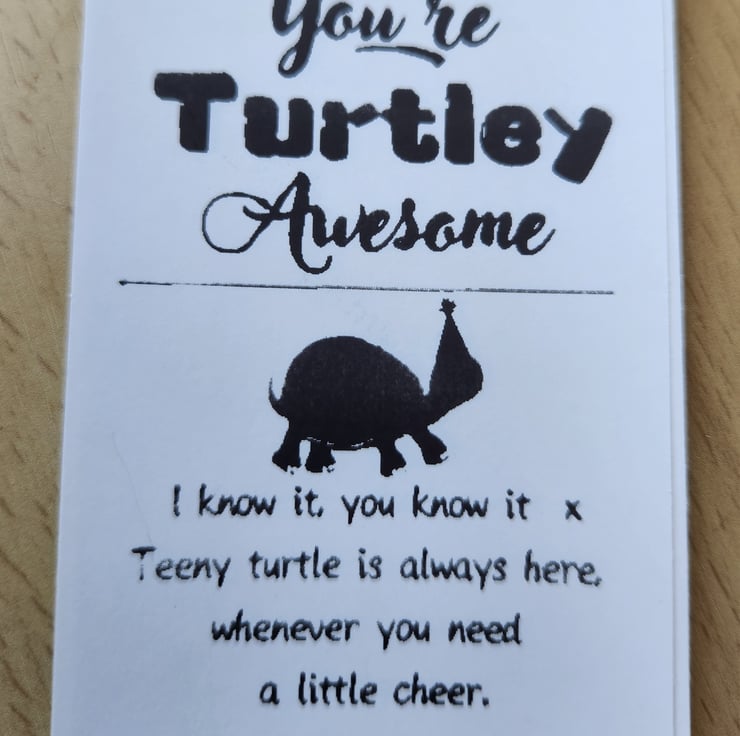 You're
Turtley
Awesome
I know it, you know it x
Teeny turtle is always here,
whenever you need
a little cheer.